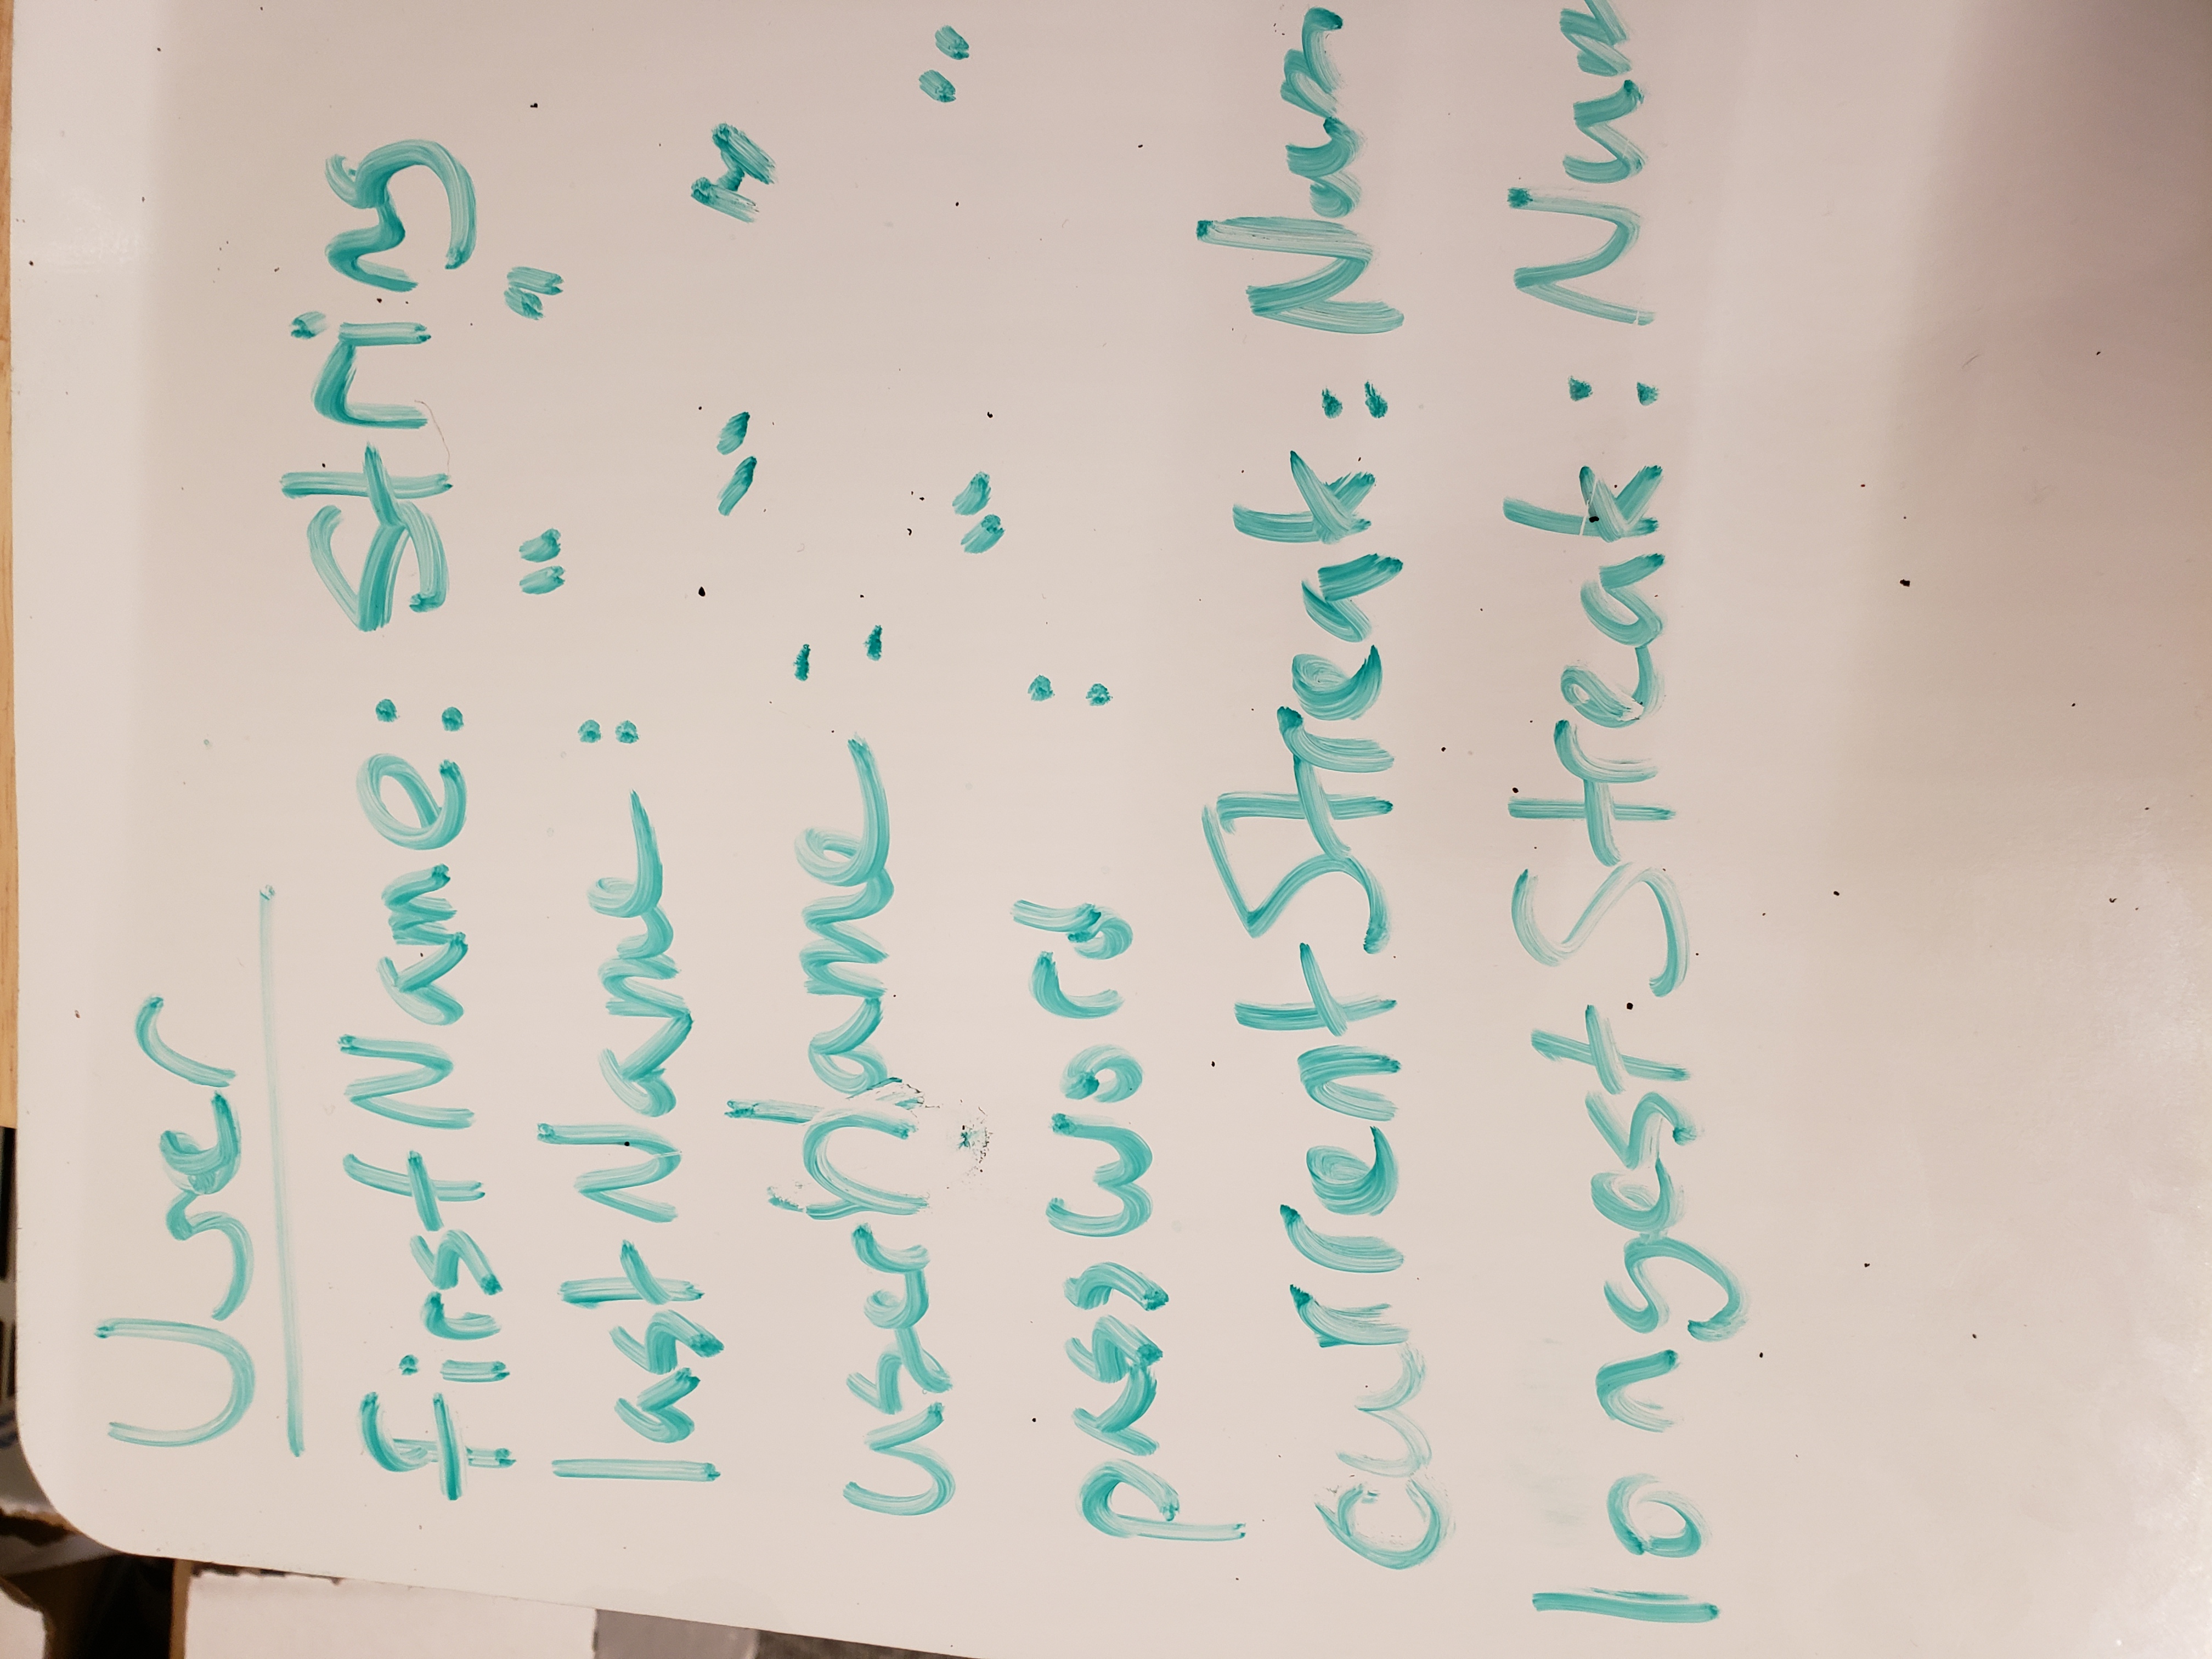 User
firstName: String
lastName : " "
userName : " "
password : " "
currentStreak: Num
longestStreak: Num